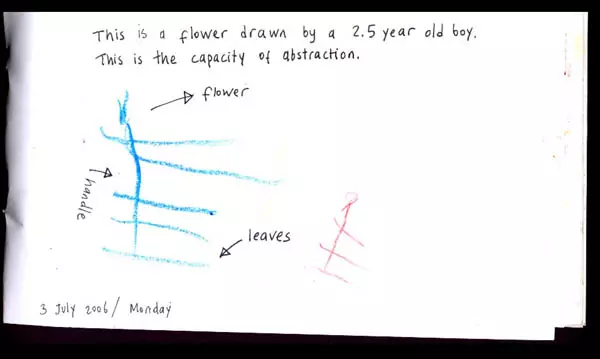 This is a flower drawn by a 2.5 year old boy.
This is the capacity of abstraction.
flower
handle
leaves
3 July 2006 / Monday